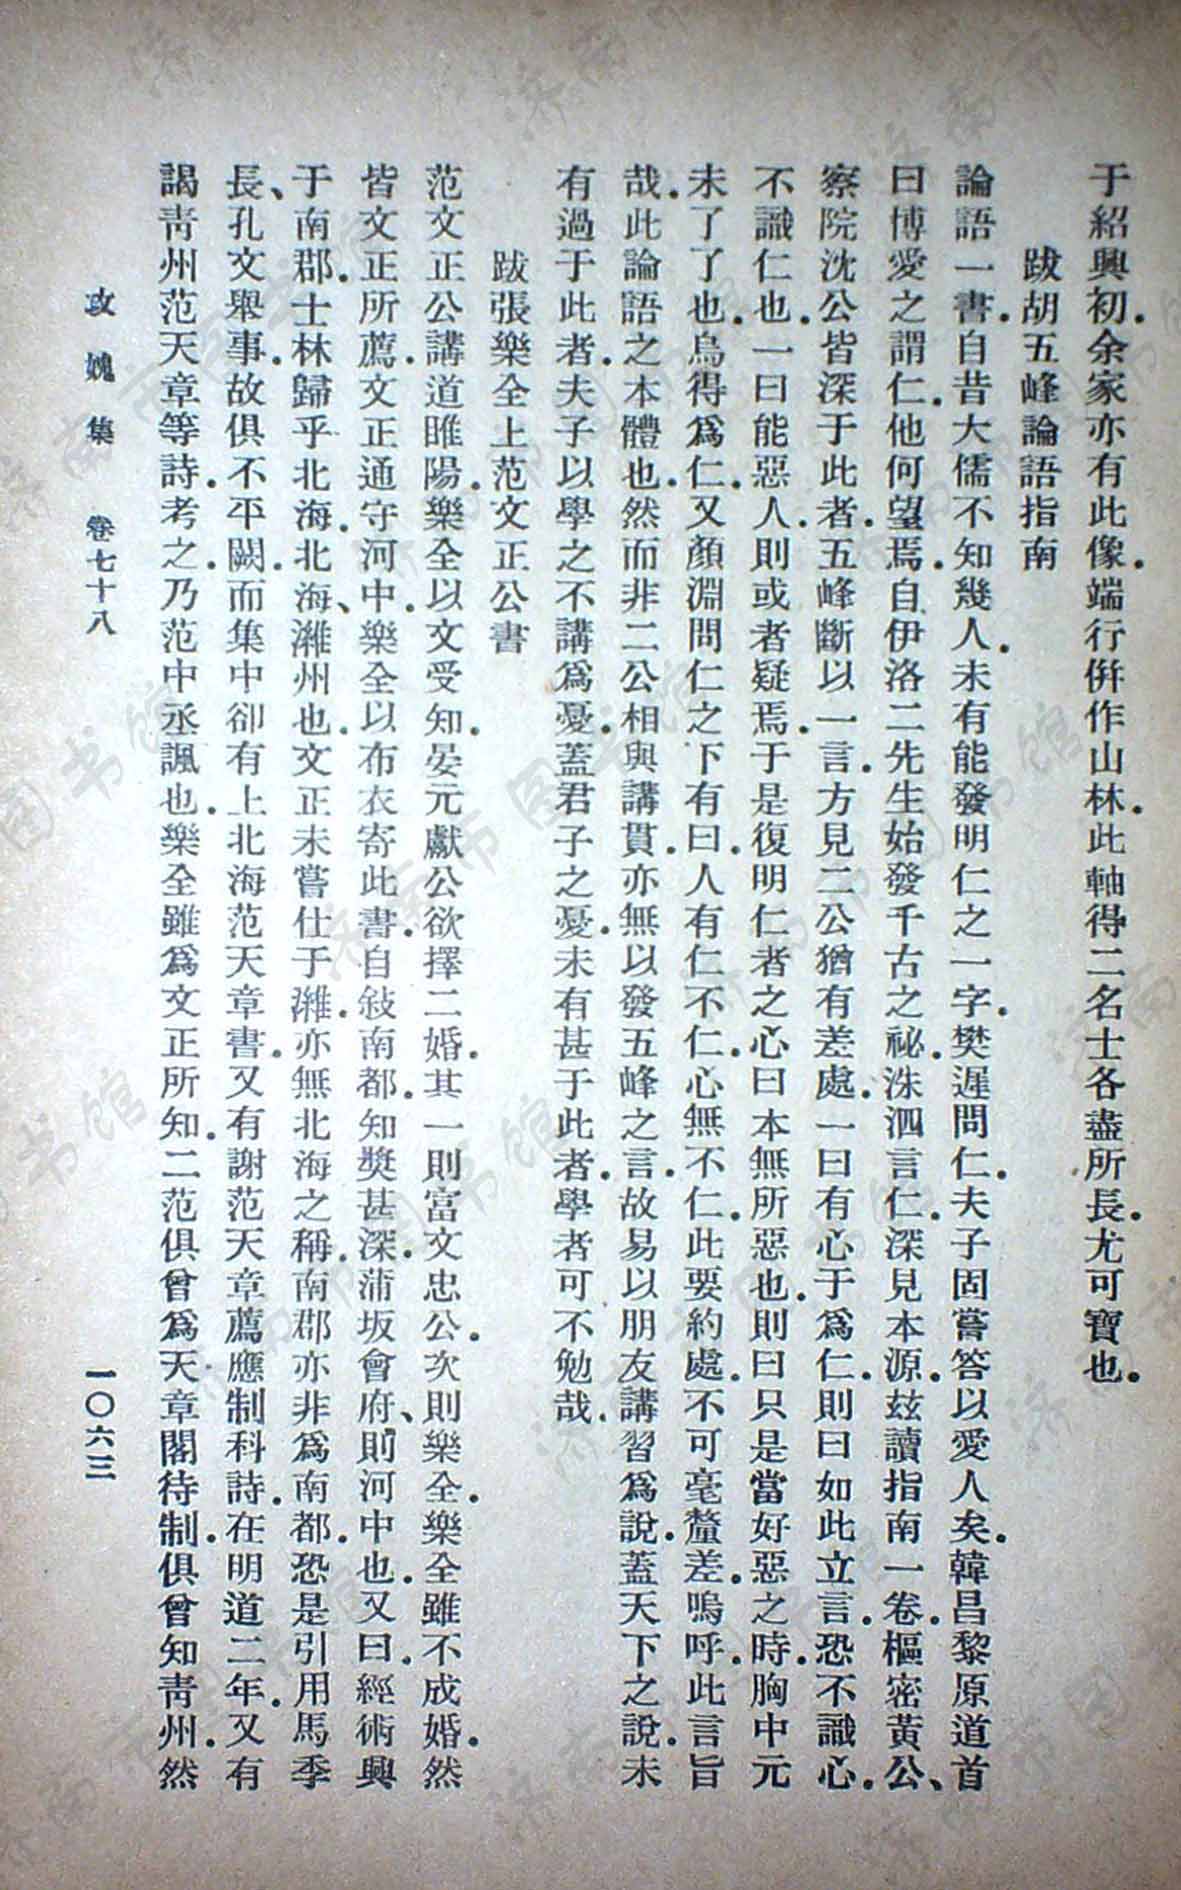 于紹興初.余家亦有此像.端行併作山林.此軸得二名士各盡所長.尤可寶也.
跋胡五峰論語指南
論語一書.自昔大儒不知幾人.未有能發明仁之一字.樊遲問仁.夫子固嘗答以愛人矣.韓昌黎原道首
曰博愛之謂仁.他何望焉.自伊洛二先生始發千古之祕.洙泗言仁.深見本源.玆讀指南一卷.樞密黃公、
察院沈公皆深于此者.五峰斷以一言.方見二公猶有差處.一曰有心于爲仁.則曰如此立言.恐不識心.
不識仁也.一曰能惡人.則或者疑焉.于是復明仁者之心曰本無所惡也.則曰只是當好惡之時.胸中元
未了了也.烏得爲仁.又顏淵問仁之下有曰.人有仁不仁.心無不仁.此要約處.不可毫釐差.嗚呼.此言旨
哉.此論語之本體也.然而非二公相與講貫.亦無以發五峰之言.故易以朋友講習爲說.蓋天下之說.未
有過于此者.夫子以學之不講爲憂.蓋君子之憂.未有甚于此者.學者可不勉哉.
跋張樂全上范文正公書
范文正公講道睢陽.樂全以文受知.晏元獻公欲擇二婚.其一則富文忠公.次則樂全.樂全雖不成婚.然
皆文正所薦.文正通守河中.樂全以布衣寄此書.自敍南都.知獎甚深.蒲坂會府、則河中也.又曰.經術興
于南郡.士林歸乎北海.北海、濰州也.文正未嘗仕于濰.亦無北海之稱.南郡亦非爲南都.恐是引用馬季
長、孔文舉事.故俱不平闕.而集中卻有上北海范天章書.又有謝范天章薦應制科詩.在明道二年.又有
謁青州范天章等詩.考之.乃范中丞諷也.樂全雖爲文正所知.二范俱曾爲天章閣待制.俱曾知青州.然
攻媿集 卷七十八 一〇六三
济南市图书馆